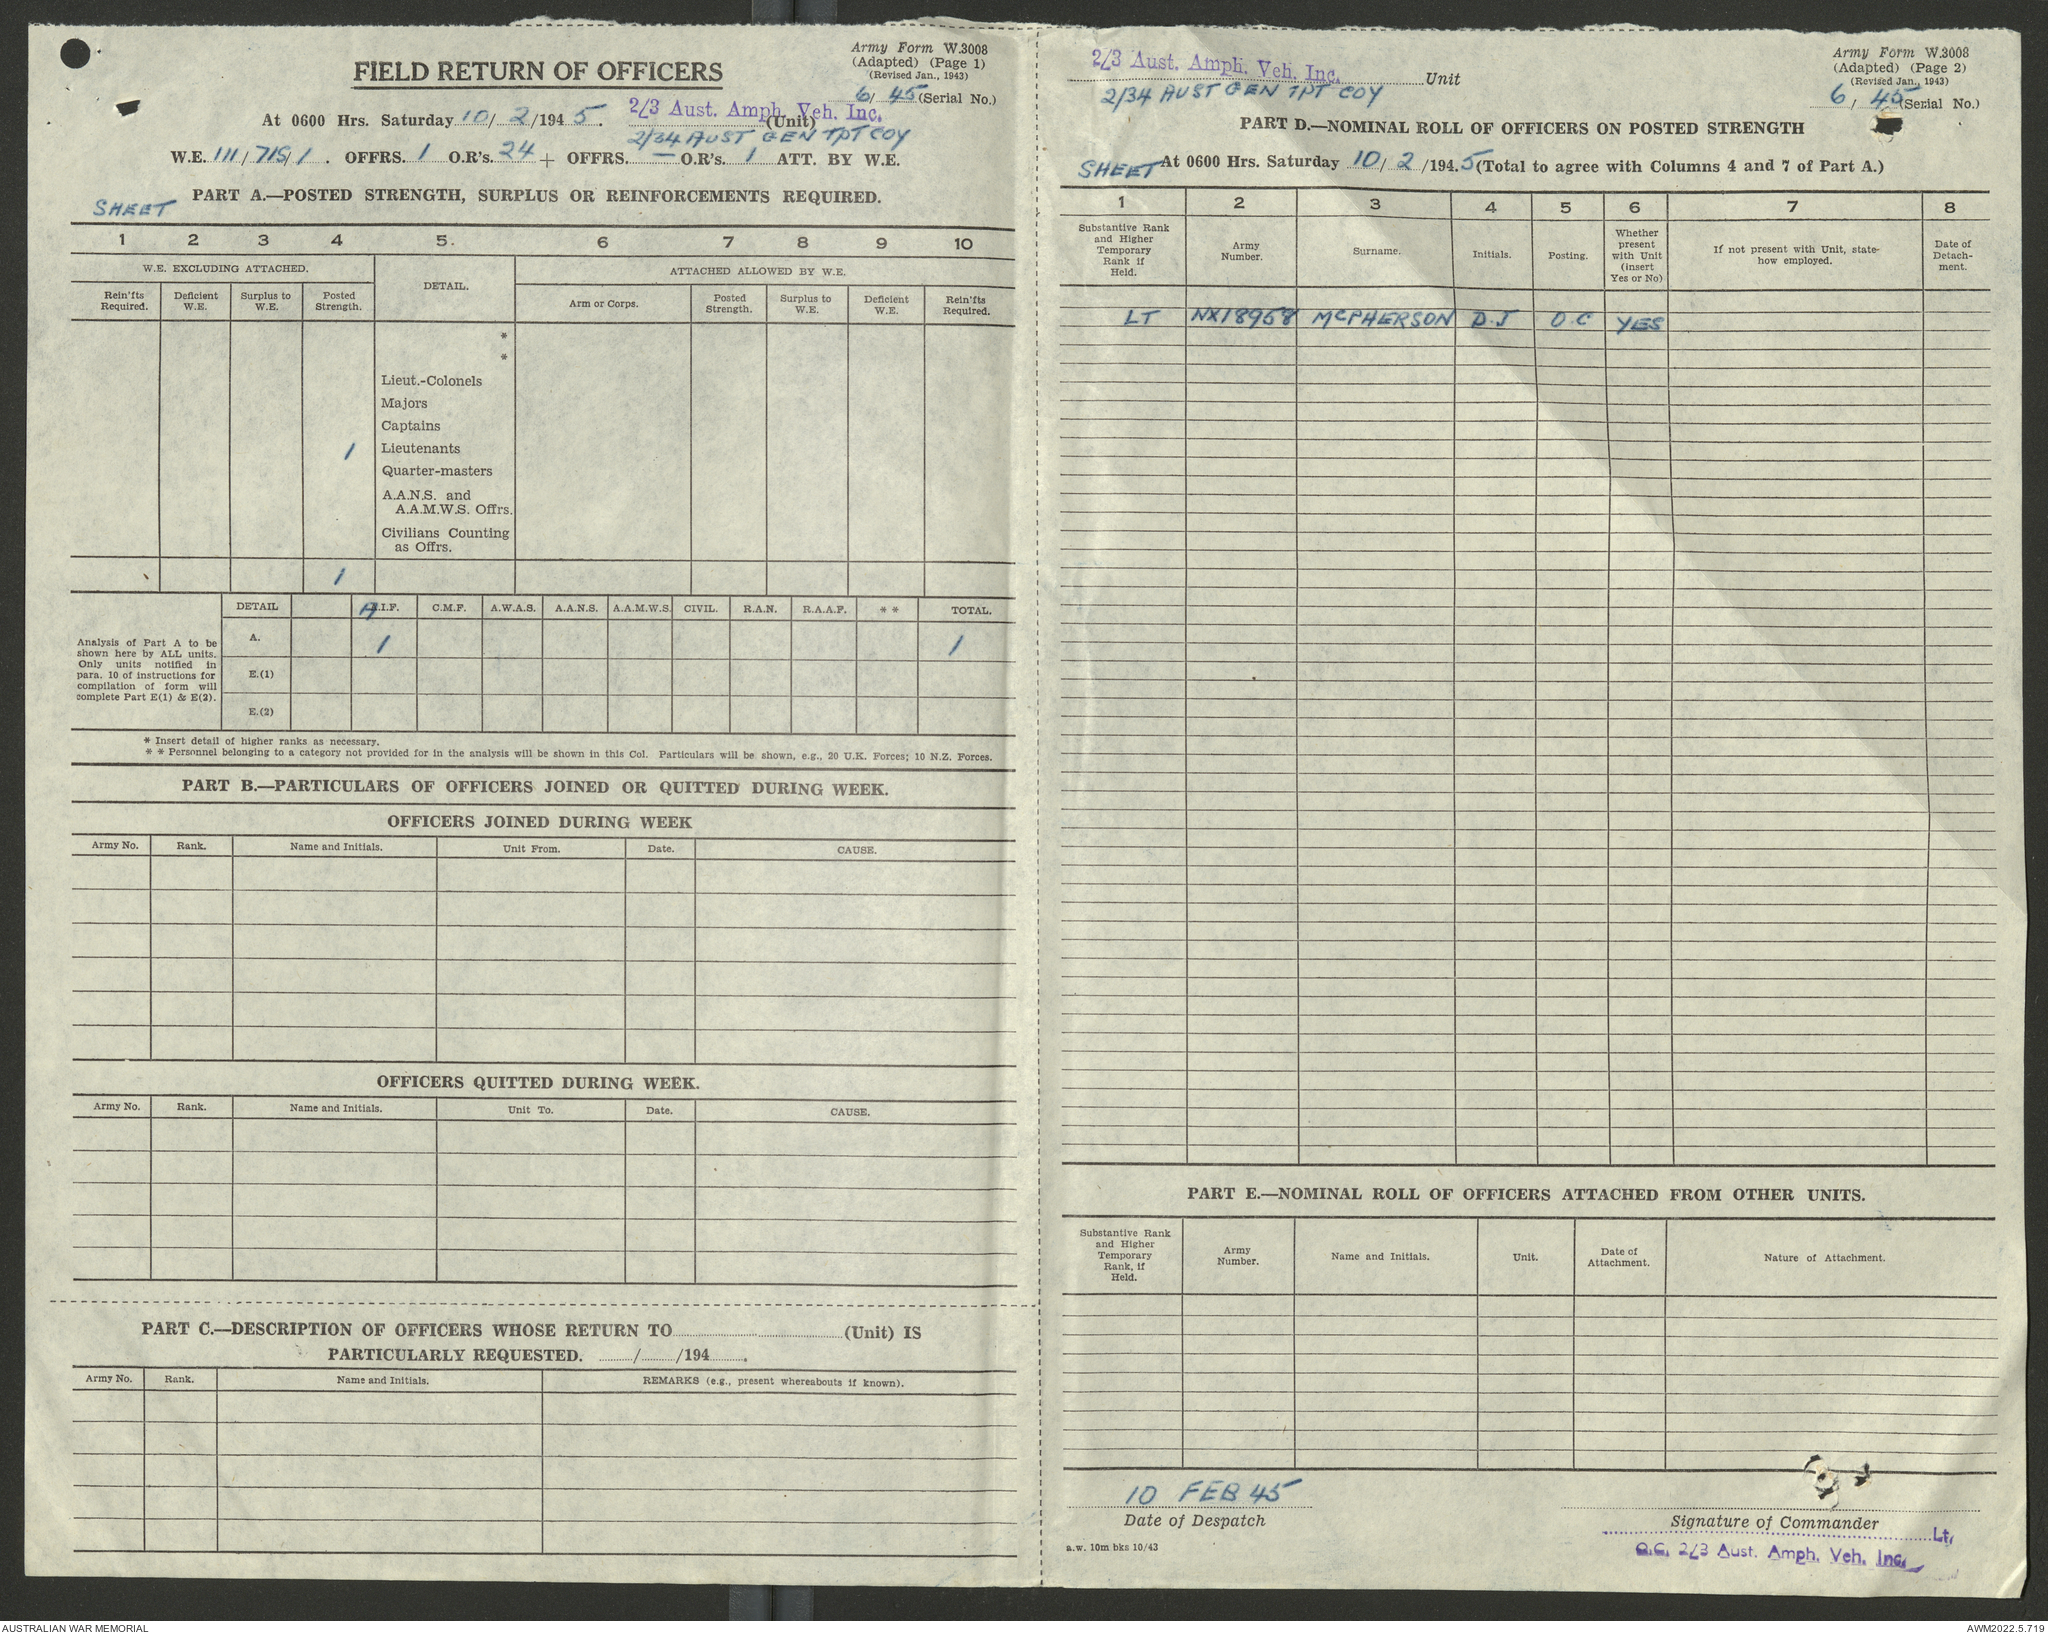 Army Form W.3008
(Adapted) (Page 1)
(Revised Jan., 1943)
FIELD RETURN OF OFFICERS
6/ 45 (Serial No.)
At 0600 Hrs. Saturday 10/ 2 /194 5. 2/3 Aust. Amph. Veh. Inc. (Unit)
2/34 AUST GEN TPT COY
W.E. 111/ 715/ 1 . OFFRS. 1 O.R's. 24 + OFFRS. — O.R's. 1 ATT. BY W.E.
PART A.—POSTED STRENGTH, SURPLUS OR REINFORCEMENTS REQUIRED.
SHEET
1 2 3 4 5. 6 7 8 9 10
W.E. EXCLUDING ATTACHED. DETAIL. ATTACHED ALLOWED BY W.E.
Rein'fts Required. Deficient W.E. Surplus to W.E. Posted Strength. Arm or Corps. Posted Strength. Surplus to W.E. Deficient W.E. Rein'fts Required.
*
*
Lieut.-Colonels
Majors
Captains
1 Lieutenants
Quarter-masters
A.A.N.S. and
A.A.M.W.S. Offrs.
Civilians Counting
as Offrs.
1
DETAIL A.I.F. C.M.F. A.W.A.S. A.A.N.S. A.A.M.W.S. CIVIL. R.A.N. R.A.A.F. * * TOTAL.
A. 1 1
Analysis of Part A to be
shown here by ALL units.
Only units notified in
para. 10 of instructions for
compilation of form will
complete Part E(1) & E(2).
E.(1)
E.(2)
* Insert detail of higher ranks as necessary.
* * Personnel belonging to a category not provided for in the analysis will be shown in this Col. Particulars will be shown, e.g., 20 U.K. Forces; 10 N.Z. Forces.
PART B.—PARTICULARS OF OFFICERS JOINED OR QUITTED DURING WEEK.
OFFICERS JOINED DURING WEEK
Army No. Rank. Name and Initials. Unit From. Date. CAUSE.
OFFICERS QUITTED DURING WEEK.
Army No. Rank. Name and Initials. Unit To. Date. CAUSE.
PART C.—DESCRIPTION OF OFFICERS WHOSE RETURN TO (Unit) IS
PARTICULARLY REQUESTED. / /194 .
Army No. Rank. Name and Initials. REMARKS (e.g., present whereabouts if known).
2/3 Aust. Amph. Veh. Inc. Unit
2/34 AUST GEN TPT COY
Army Form W.3008
(Adapted) (Page 2)
(Revised Jan., 1943)
6/ 45 (Serial No.)
PART D.—NOMINAL ROLL OF OFFICERS ON POSTED STRENGTH
SHEET At 0600 Hrs. Saturday 10/ 2 /194.5 (Total to agree with Columns 4 and 7 of Part A.)
1 2 3 4 5 6 7 8
Substantive Rank and Higher Temporary Rank if Held. Army Number. Surname. Initials. Posting. Whether present with Unit (insert Yes or No) If not present with Unit, state- how employed. Date of Detach- ment.
LT NX18958 McPHERSON D.J O.C YES
PART E.—NOMINAL ROLL OF OFFICERS ATTACHED FROM OTHER UNITS.
Substantive Rank and Higher Temporary Rank, if Held. Army Number. Name and Initials. Unit. Date of Attachment. Nature of Attachment.
10 FEB 45
Date of Despatch
Signature of Commander
Lt.
O.C. 2/3 Aust. Amph. Veh. Inc.
a.w. 10m bks 10/43
AUSTRALIAN WAR MEMORIAL
AWM2022.5.719